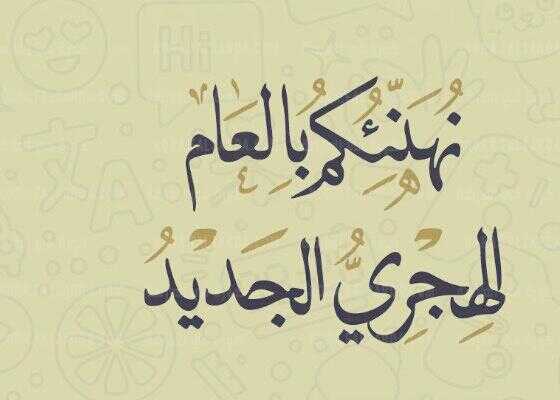 نُهَنِّئُكُم بِالعَام
الهِجْرِيُّ الجَدِيْدُ
Hi